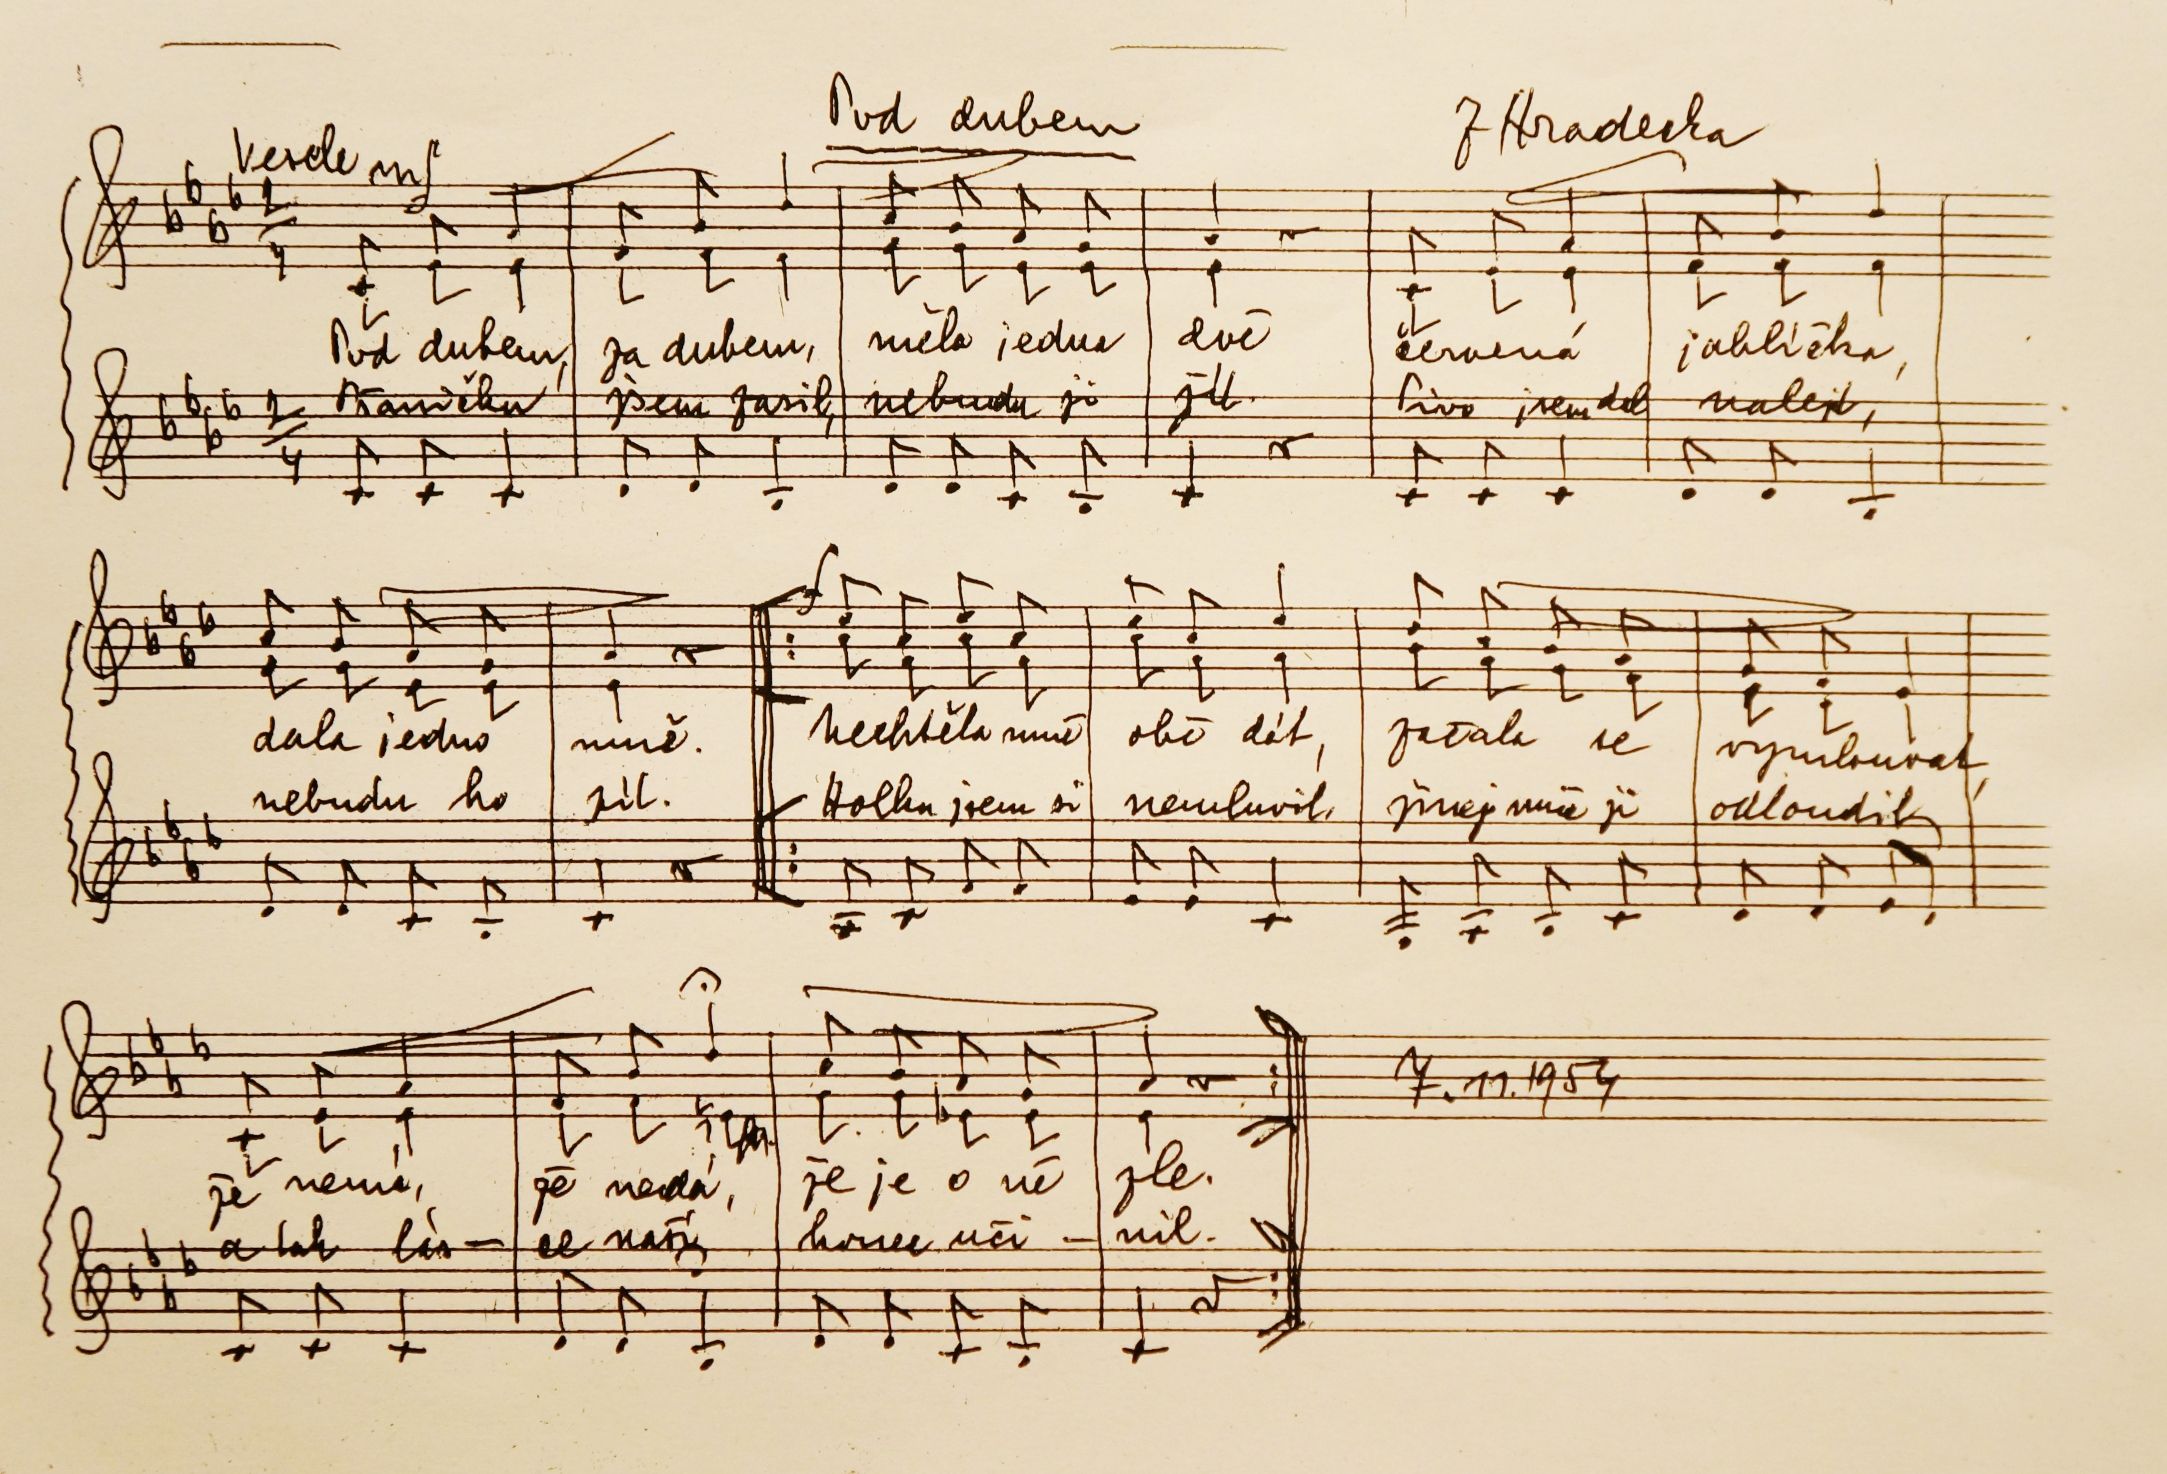 Pod dubem
Z Hradecka
Vesele mf
2/4
Pod dubem, za dubem, měla jedna dvě červená jablíčka,
2/4
jsem zasil, nebudu ji žít. Pivo jsem dal nalejt,
f
dala jedno mně. Nechtěla mně obě dát, začala se vymlouvat,
nebudu ho pít. Holku jsem si namluvil, jinej mně ji odloudil,
že nemá, že nedá, že je o ně zle.
7.11.1954
a tak lás - ce naší konec uči - nil.